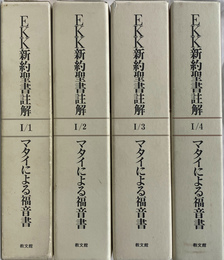 EKK
新約聖書註解
I/1
マタイによる福音書
教文館
EKK
新約聖書註解
I/2
マタイによる福音書
教文館
EKK
新約聖書註解
I/3
マタイによる福音書
教文館
EKK
新約聖書註解
I/4
マタイによる福音書
教文館